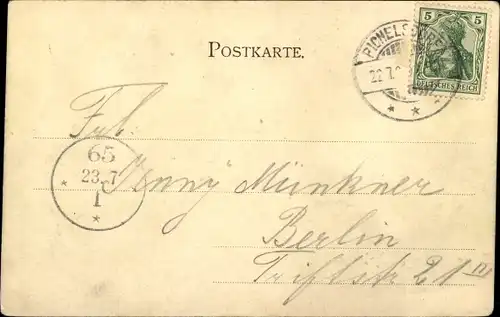 POSTKARTE.
PICHELSDORF
22.7.
5 5
DEUTSCHES REICH
Frl.
65
23.7
1
Jenny Münkner
Berlin
Triftstr. 21 III